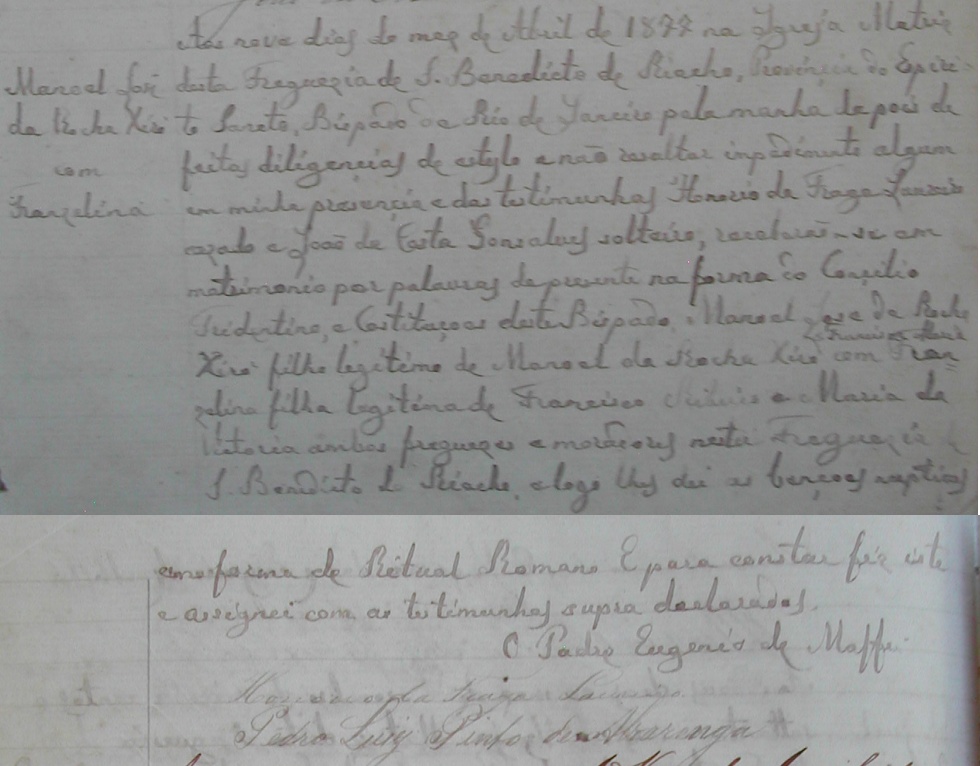 Aos nove dias do mez de Abril de 1877 na Igreja Matriz
Manoel José
da Rocha Xisto
com
Franzelina
desta Freguezia de S. Benedicto do Riacho, Provincia do Espiri-
to Santo, Bispado do Rio de Janeiro pela manha depois de
feitas diligencias de estylo e não resaltar inpedimento algum
em minha presencia e das testimunhas Honorio da Fraga Loureiro
cazado e João da Costa Gonsalves solteiro, receberão-se em
matrimonio por palavras de presente na forma do Concilio
Tridentino, e Costituçoes deste Bispado, Manoel Jose da Rocha
Francisca Maria
Xisto filho legitimo de Manoel da Rocha Xisto com Fran-
zelina filha legitima de Francisco e Maria da
Victoria ambos freguezes e moradores nesta Freguezia
S. Benedicto do Riacho, e logo lhes dei as bençoes nuptiaes
em forma do Ritual Romano E para constar fiz este
e assignei com as testimunhas supra declaradas.
O Padre Eugenio de Maffei
Honorio da Fraga Loureiro.
Pedro Luiz Pinto de Alvarenga